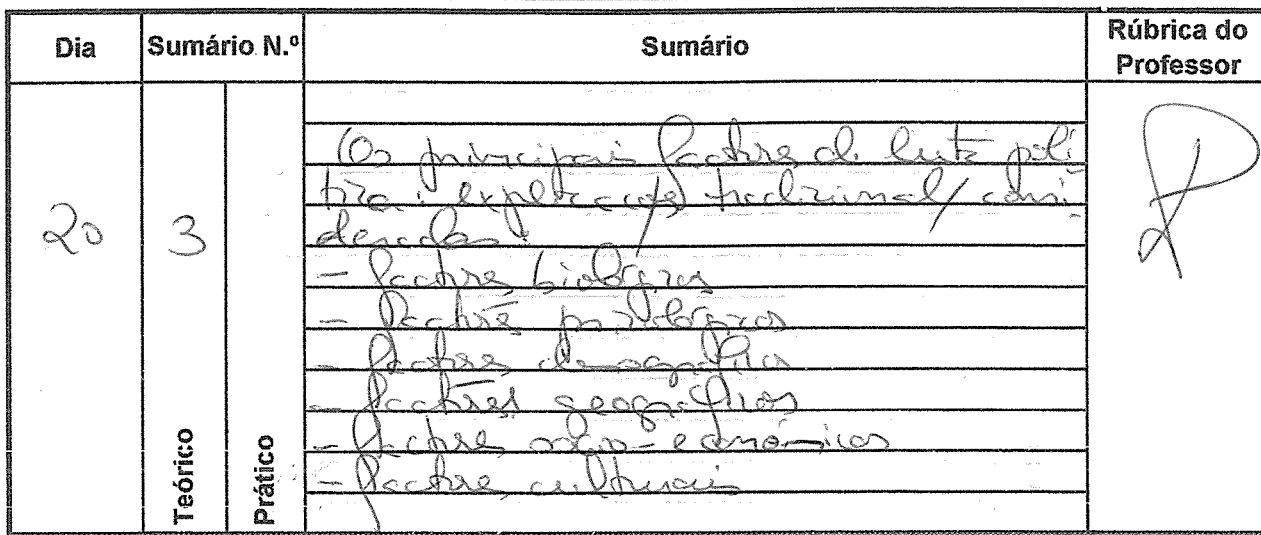 Dia Sumário N.º Sumário Rúbrica do Professor
Teórico
Prático
20 3
Os principais factores de luta polí
tica: explicações tradicional/ consi
deradas:
- factores biológicos
- factores psicológicos
- factores demográficos
- factores geográficos
- factores sócio-económicos
- factores culturais